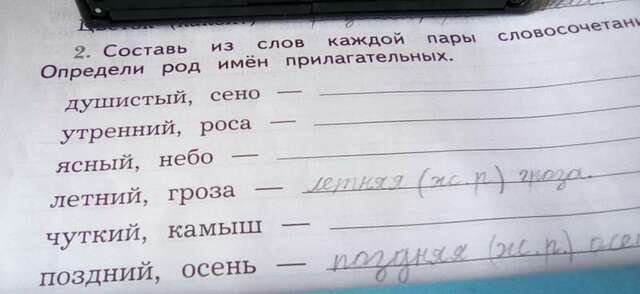 2. Составь из слов каждой пары словосочетани
Определи род имён прилагательных.
душистый, сено —
утренний, роса —
ясный, небо —
летний, гроза — летняя (ж.р.) гроза.
чуткий, камыш —
поздний, осень — поздняя (ж.р.) осе